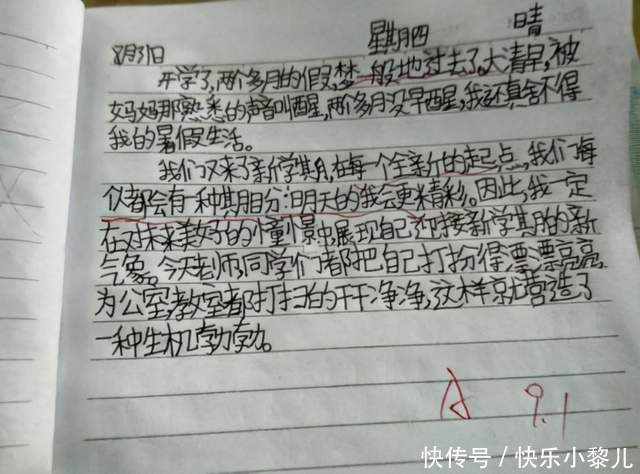 8月31日 星期四 晴
开学了,两个多月的假,梦一般地过去了。大清早,被
妈妈那熟悉的声音叫醒,两个多月没早醒,我还真舍不得
我的暑假生活。
我们又来了新学期,在每一个全新的起点,我们每
似都会有一种期盼:明天的我会更精彩。因此,我一定
在对未来美好的憧憬中,展现自己迎接新学期的新
气象。今天老师,同学们都把自己打扮得漂漂亮亮,
为公室,教室都打扫的干干净净,这样就营造了
一种生机勃勃。
A 9.1
快传号/快乐小黎儿